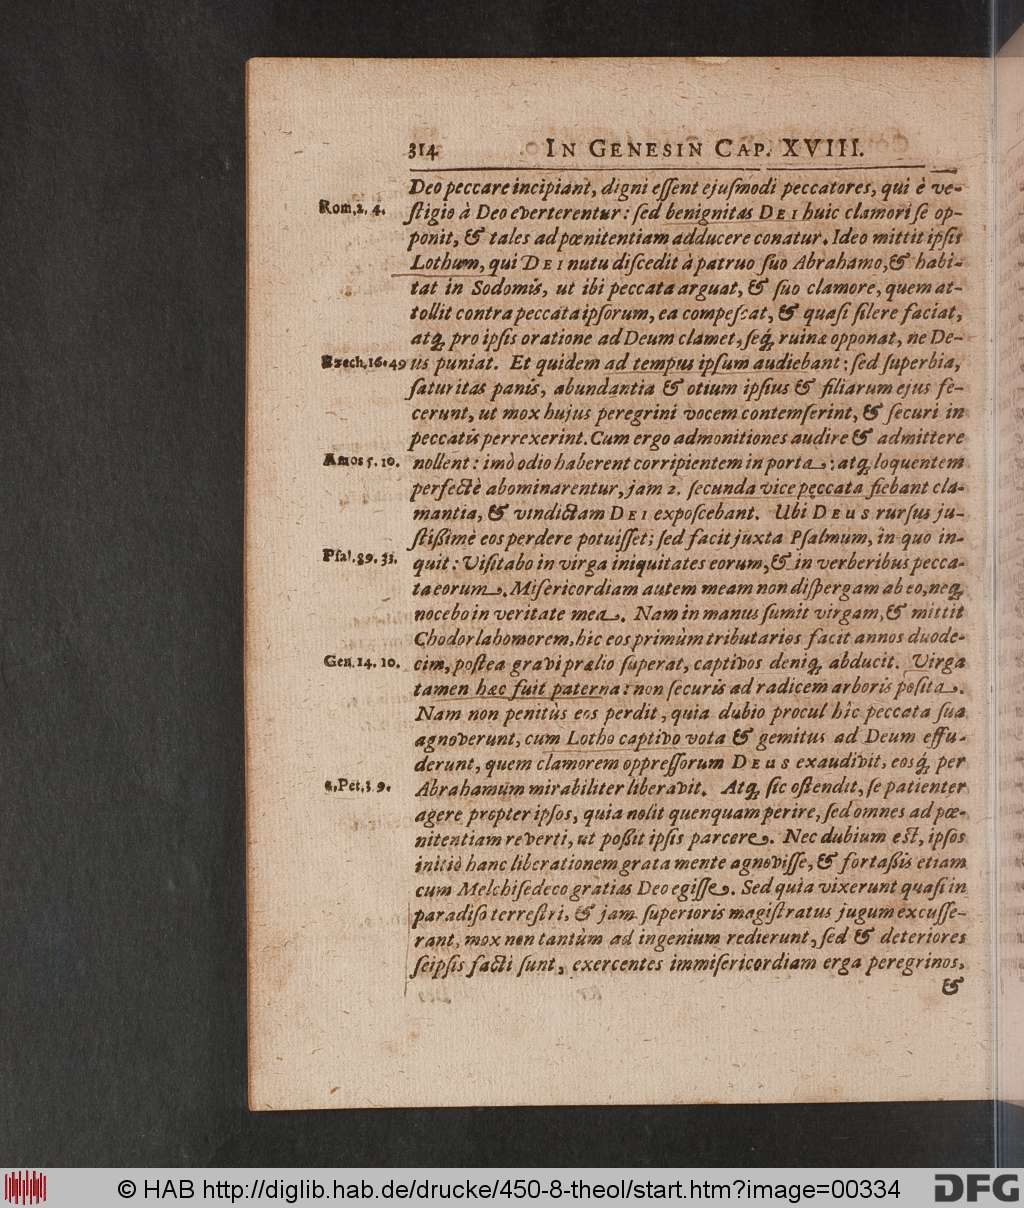 314 IN GENESIN CAP. XVIII.
Deo peccare incipiant, digni eſſent ejuſmodi peccatores, qui è ve-
Rom. 2. 4. ſtigio à Deo everterentur: ſed benignitas DEI huic clamori ſe op-
ponit, & tales ad pœnitentiam adducere conatur. Ideo mittit ipſis
Lothum, qui DEI nutu diſcedit à patruo ſuo Abrahamo, & habi-
tat in Sodomis, ut ibi peccata arguat, & ſuo clamore, quem at-
tollit contra peccata ipſorum, ea compeſcat, & quaſi ſilere faciat,
atq; pro ipſis oratione ad Deum clamet, ſeq́; ruinæ opponat, ne De-
Ezech. 16. 49 us puniat. Et quidem ad tempus ipſum audiebant: ſed ſuperbia,
ſaturitas panis, abundantia & otium ipſius & filiarum ejus fe-
cerunt, ut mox hujus peregrini vocem contemſerint, & ſecuri in
peccatis perrexerint. Cum ergo admonitiones audire & admittere
Amos 5. 10. nollent: imò odio haberent corripientem in porta: atq; loquentem
perfectè abominarentur, jam 2. ſecunda vice peccata fiebant cla-
mantia, & vindictam DEI expoſcebant. Ubi DEUS rurſus ju-
ſtißimè eos perdere potuiſſet; ſed facit juxta Pſalmum, in quo in-
Pſal. 89. 33. quit: Viſitabo in virga iniquitates eorum, & in verberibus pecca-
ta eorum. Miſericordiam autem meam non diſpergam ab eo, neq;
nocebo in veritate mea. Nam in manus ſumit virgam, & mittit
Chodorlahomorem, hic eos primùm tributarios facit annos duode-
Gen. 14. 10. cim, poſtea gravi prælio ſuperat, captivos deniq; abducit. Virga
tamen hæc fuit paterna: non ſecuris ad radicem arboris poſita.
Nam non penitùs eos perdit, quia dubio procul hîc peccata ſua
agnoverunt, cum Lotho captivo vota & gemitus ad Deum effu-
derunt, quem clamorem oppreſſorum DEUS exaudivit, eosq́; per
2. Pet. 3. 9. Abrahamum mirabiliter liberavit. Atq; ſic oſtendit, ſe patienter
agere propter ipſos, quia nolit quenquam perire, ſed omnes ad pœ-
nitentiam reverti, ut poßit ipſis parcere. Nec dubium eſt, ipſos
initiò hanc liberationem grata mente agnoviſſe, & fortaßis etiam
cum Melchiſedeco gratias Deo egiſſe. Sed quia vixerunt quaſi in
paradiſo terreſtri, & jam ſuperioris magiſtratus jugum excuſſe-
rant, mox non tantùm ad ingenium redierunt, ſed & deteriores
ſeipſis facti ſunt, exercentes immiſericordiam erga peregrinos,
&
© HAB http://diglib.hab.de/drucke/450-8-theol/start.htm?image=00334
DFG